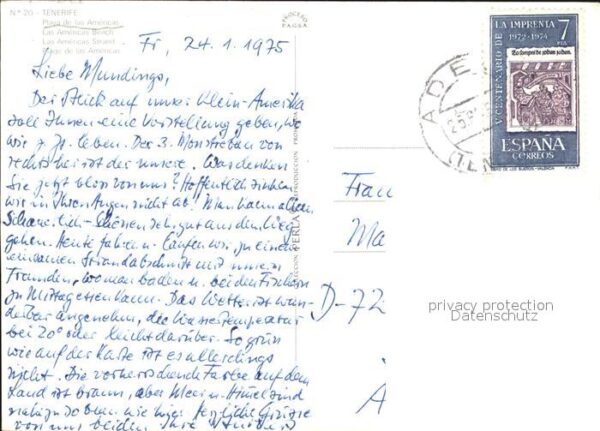 Nº 20 - TENERIFE
Playa de las Américas
Las Américas Beach
Las Américas Strand
Plage de las Américas
PROCESO
Fr, 24.1.1975
Liebe Mundings,
Der Blick auf unser Klein-Amerika
soll Ihnen eine Vorstellung geben, wo
wir z. Zt. leben. Der 3. Monstrebau von
rechts her ist der unsere. Was denken
Sie jetzt bloss von uns? Hoffentlich sinken
wir in Ihren Augen nicht ab. Man kann allem
Scheusslich-Schönen sehr gut aus dem Weg
gehen. Heute fahren u. laufen wir zu einem
einsamen Strandabschnitt mit unsern
Freunden, wo man baden u. bei den Fischern
zu Mittag essen kann. Das Wetter ist wun-
derbar angenehm, die Wassertemperatur
bei 20° oder leicht darüber. So grün
wie auf der Karte ist es allerdings
nicht. Die vorherrschende Farbe auf dem
Land ist braun, aber Meer u. Himmel sind
nahezu so blau wie hier. Herzliche Grüsse
von uns beiden Ihre
PERLA
V CENTENARIO DE LA IMPRENTA
1972-1974
7
PTA
ESPAÑA
CORREOS
ADEJE
(TEN
Frau
Ma
D-72
A
privacy protection
Datenschutz